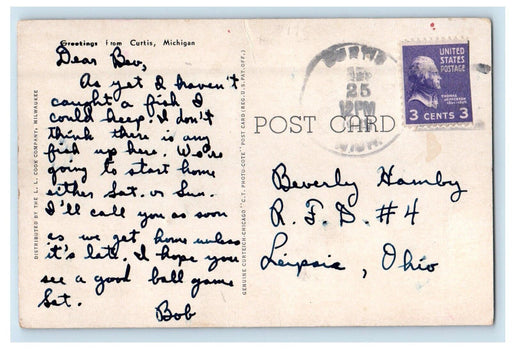 Greetings from Curtis, Michigan
Dear Bev,
As yet I haven't
caught a fish I
could keep. I don't
think there is any
fish up here. We're
going to start home
either Sat. or Sun.
I'll call you as soon
as we get home unless
it's late. I hope you
see a good ball game
Sat.
Bob
DISTRIBUTED BY THE L. L. COOK COMPANY, MILWAUKEE
GENUINE CURTEICH-CHICAGO "C.T. PHOTO-COTE" POST CARD (REG. U.S. PAT. OFF.)
POST CARD
25
12 PM
MICH.
UNITED
STATES
POSTAGE
THOMAS
JEFFERSON
3 CENTS 3
Beverly Hamby
R. F. D. #4
Leipsic, Ohio